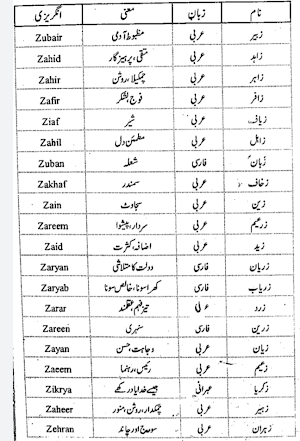 نام زبان معنی انگریزی
زبیر عربی مضبوط آدمی Zubair
زاہد عربی متقی، پرہیزگار Zahid
زاہر عربی چمکیلا، روشن Zahir
زافر عربی فوج، لشکر Zafir
زیاف عربی شیر Ziaf
زاہل عربی مطمئن دل Zahil
زبان فارسی شعلہ Zuban
زخاف عربی سمندر Zakhaf
زین عربی سجاوٹ Zain
زرعیم عربی سردار، پیشوا Zareem
زید عربی اضافہ، کثرت Zaid
زریان فارسی دولت کا متلاشی Zaryan
زریاب فارسی کھرا سونا، خالص سونا Zaryab
زرد عربی تیز فہم، عقلمند Zarar
زرین فارسی سنہری Zareen
زیان عربی وجاہت، حسن Zayan
زعیم عربی رئیس، رہنما Zaeem
زکریا عبرانی جسے خدا یاد رکھے Zikrya
زہیر عربی چمکدار، روشن، منور Zaheer
زہران عربی سورج اور چاند Zehran